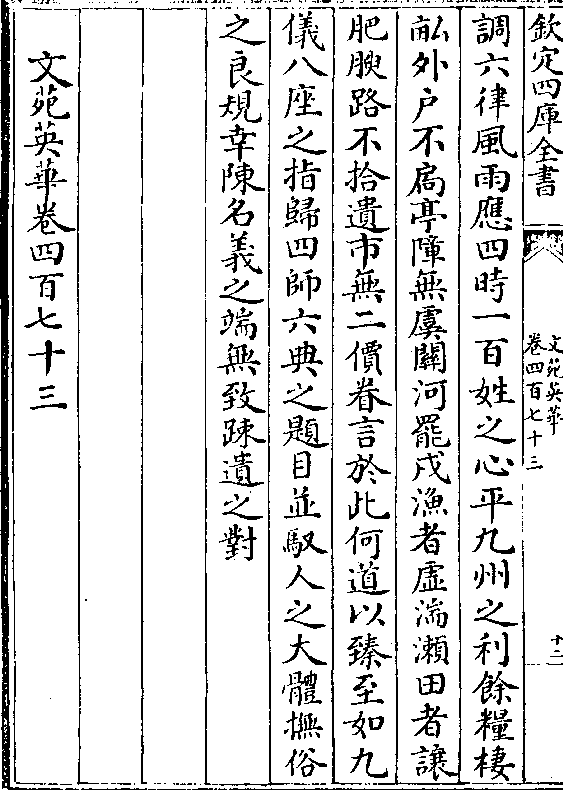 欽定四庫全書
文苑英華
卷四百七十三
十二
調六律風雨應四時一百姓之心平九州之利餘糧棲
畝外户不扃亭障無虞關河罷戍漁者虛湍瀬田者讓
肥腴路不拾遺市無二價眷言於此何道以臻至如九
儀八座之指歸四師六典之題目並馭人之大體撫俗
之良規幸陳名義之端無致踈遺之對
文苑英華卷四百七十三